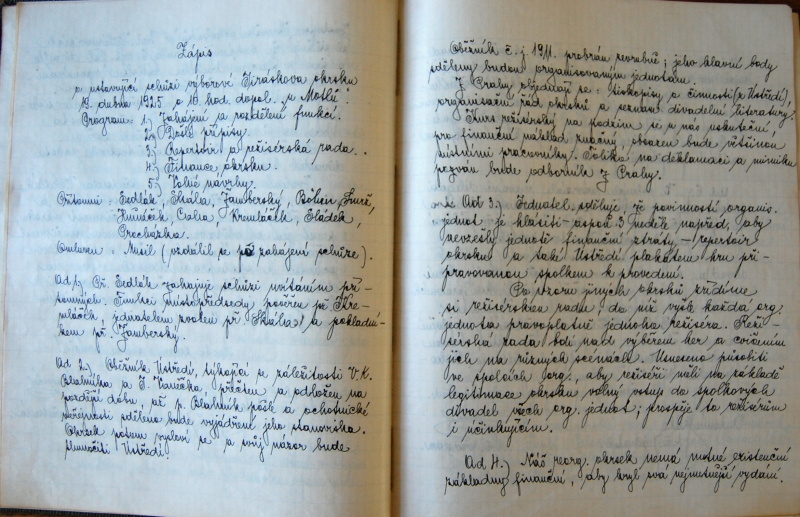 Zápis
o ustavující schůzi výborové Jiráskova okrsku
dubna 1925 o 10 hod. dopol. u Motlů".
Program: 1.) Zahájení a rozdělení funkcí.
2.) Došlé přípisy.
3.) Repertoir a režisérská rada.
4.) Finance okrsku.
5.) Volné návrhy.
Přítomni: Sedlák, Skála, Jamberský,
Hnůáček Kremláček, Sládek,
Procházka.
Omluven: Musil (vzdálil se po zahájení schůze).
Ad 1.) Př. Sedlák zahajuje schůzi uvítáním pří-
tomných. Funkcí místopředsedy pověřen př. Kre-
mláček, jednatelem zvolen př. Skála a pokladní-
kem př. Jamberský.
Ad 2.) Oběžník Ústředí, týkající se záležitosti V. K.
Blahníka a J. Janečka přečten a odložen na
pozdější dobu, až p. Blahník pošle a ochotnické
veřejnosti sděleno bude vyjádření jeho stanoviska.
Okrsek potom vysloví se a svůj názor bude
tlumočiti Ústředí.
Oběžník č. j. 1911. probrán podrobně; jeho hlavní body
sděleny budou organisovaným jednotám.
Z Prahy objednají se: tiskopisy o činnosti (z Ústředí),
organisační řád okrsků a seznam divadelní literatury.
Kurs režisérský na podzim se u nás neuskuteční,
pro finanční náklad značný, obsazen bude většinou
místními pracovníky. Toliko na deklamaci a mimiku
pozván bude odborník z Prahy.
Ad 3.) Jednatel sděluje, že povinností organis.
jednot je hlásiti - aspoň 3 neděle napřed, aby
nevzešly jednotě finanční ztráty - repertoir
okrsku a také Ústředí plakátem hru při-
pravovanou spolkem k provedení.
Po vzoru jiných okrsků zřídíme
si režisérskou radu; do níž vyšle každá org.
jednota pravoplatně jednoho režiséra. Reži-
sérská rada bdí nad výběrem her a cvičením
jich na různých scénách. Usneseno působiti
ve spolcích org., aby režiséři měli na základě
legitimace okrsku volný vstup do spolkových
divadel všech org. jednot; prospěje to režisérům
i účinkujícím.
Ad 4.) Náš reorg. okrsek nemá nutné existenční
základny finanční, aby kryl svá nejnutnější vydání.